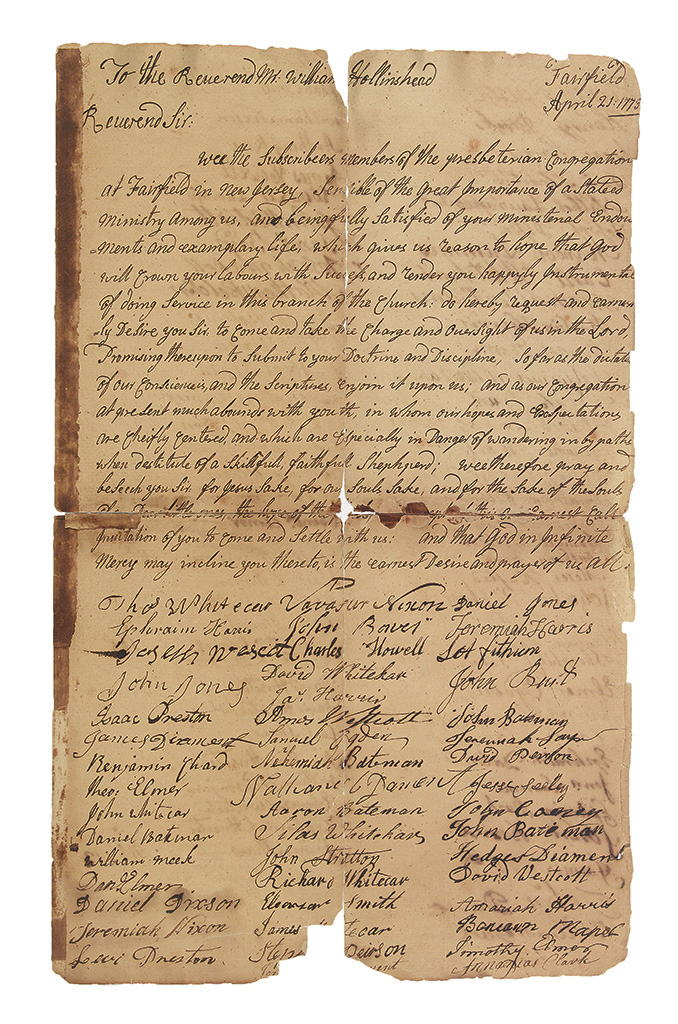 To the Reverend Mr. William Hollinshead Fairfield
April 21: 1773
Reverend Sir:
wee the Subscribers members of the presbeterian Congregation
at Fairfield in new Jersey, Sensible of the Great Importance of a Stated
ministry Among us, and being fully Satisfied of your ministerial Endow
-ments and examplary life, which gives us reason to hope that God
will Crown your labours with Success, and render you happyly Instrumental
of doing Service in this branch of the Church: do hereby request and earnest
-ly Desire you Sir. to Come and take the Charge and Oversight of us in the Lord
Promising thereupon to Submit to your Doctrine and Discipline, So far as the dictates
of our Consciences, and the Scriptures, enjoin it upon us; and as our Congregation
at present much abounds with youth, in whom our hopes and Expectations
are Cheifly Centered, and which are Especially in Danger of wandering in by paths
when destitute of a Skillfull, faithfull Shephperd; wee therefore pray and
beseech you Sir. for Jesus Sake, for our Souls Sake, and for the Sake of the Souls
of the Earnest Call
Invitation of you to Come and Settle with us: and that God in Infinite
Mercy may incline you thereto, is the earnest Desire and prayer of us All.
Thos Whitecar Vavasur Nixon Daniel Jones
Ephraim Harris John Bower Jeremiah Harris
Joseph Wescot Charles Howell Lot fithian
David Whitekar
John Jones John
Jas. Harris
Isaac Preston Amos Westcott John Bateman
James Diament Samuel Ogden Jeremiah
Benjamin Nehemiah Bateman David
Theos: Elmer Nathaniel Jesse Seeley
John Whitcar Aaron Bateman John
Daniel Bateman Silas Whitekar John Bateman
William meek John Stratton Hedges Diament
Dan Elmer Richard Whitecar David Westcott
Daniel Dixson Eleazar Smith Amariah Harris
Jeremiah Nixon James
Levi Preston Timothy Elmer
Annanias Clark